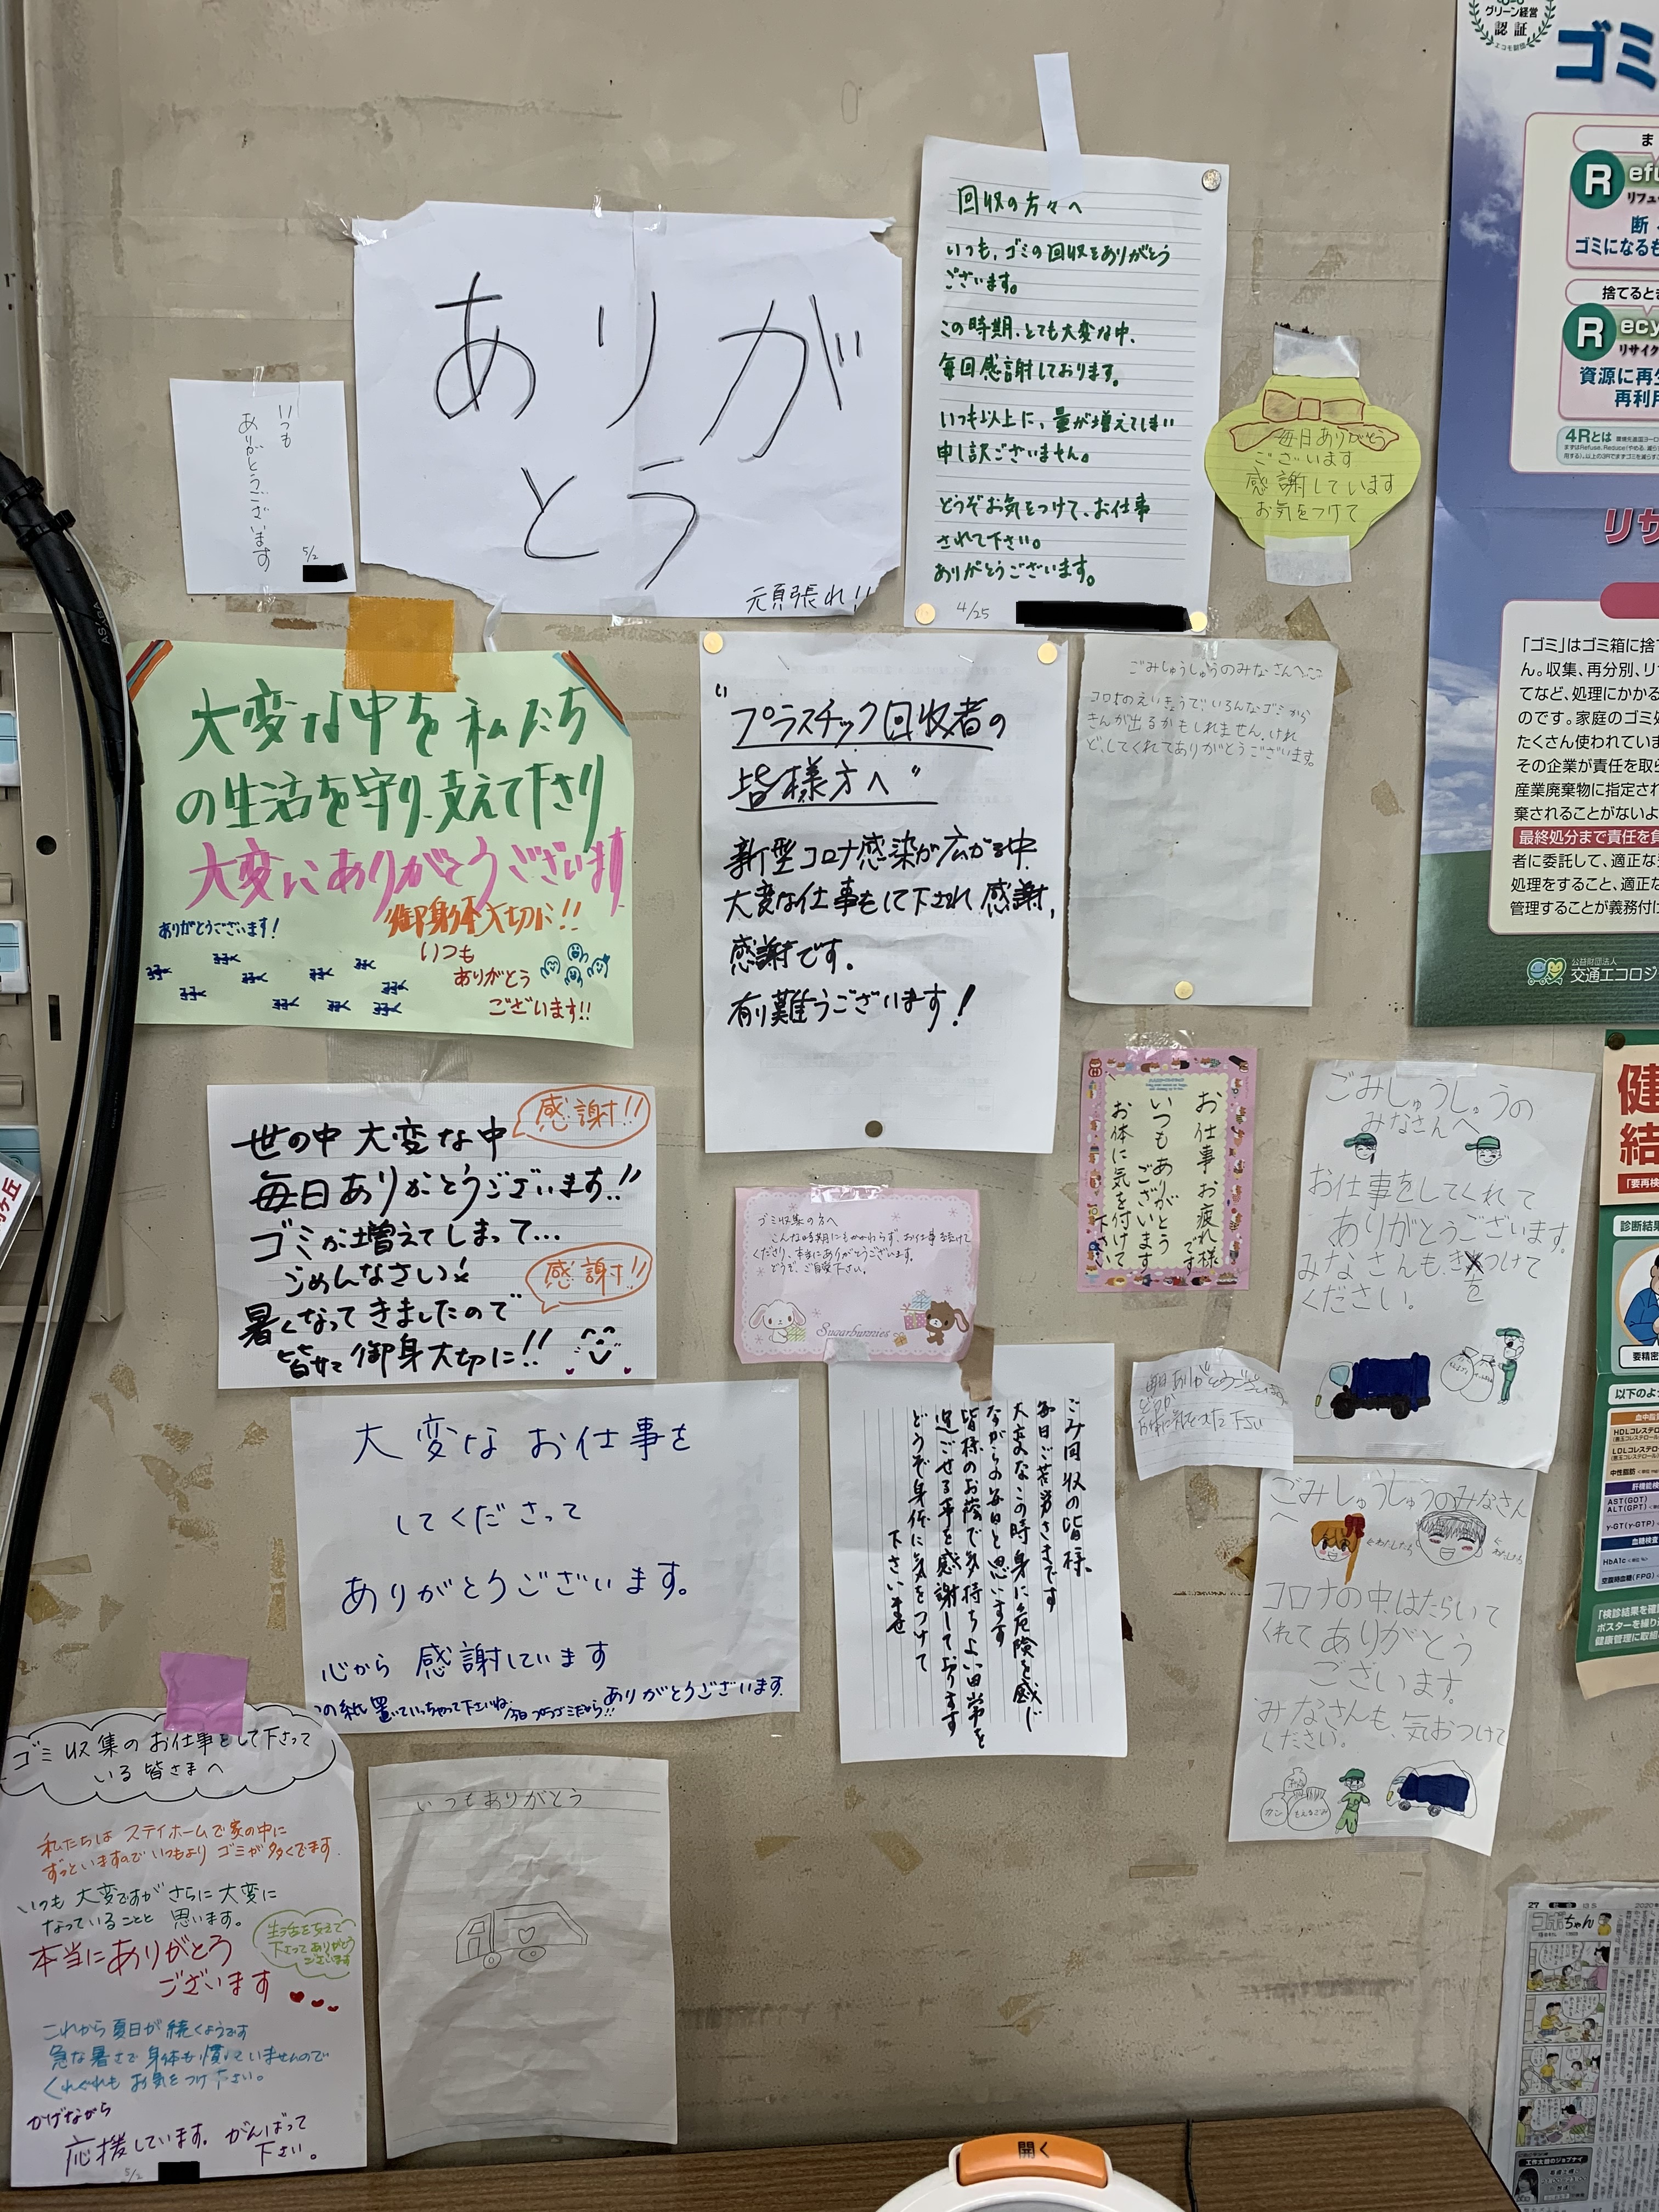 いつも
ありがとうございます
5/2
ありが
とう
頑張れ!!
回収の方々へ
いつも、ゴミの回収をありがとう
ございます。
この時期、とても大変な中、
毎回感謝しております。
いつも以上に、量が増えてしまい
申し訳ございません。
どうぞお気をつけて、お仕事
されて下さい。
ありがとうございます。
4/25
毎日ありがとう
ございます
感謝しています
お気をつけて
大変な中を私たち
の生活を守り、支えて下さり
大変にありがとうございます
御身体大切に!!
ありがとうございます!
いつも
ありがとう
ございます!!
"プラスチック回収者の
皆様方へ"
新型コロナ感染が広がる中
大変な仕事をして下され感謝,
感謝です。
有難うございます!
ごみしゅうしゅうのみなさんへ
コロナのえいきょうでいろんなゴミから
きんが出るかもしれません。けれ
ど、してくれてありがとうございます。
世の中大変な中
感謝!!
毎日ありがとうございます!!
ゴミが増えてしまって…
ごめんなさい
感謝!!
暑くなってきましたので
皆サマ御身大切に!!
ゴミ収集の方へ
こんな時期にもかかわらず、お仕事を続けて
くださり、本当にありがとうございます。
どうぞ、ご自愛下さい。
Sugarbunnies
お仕事お疲れ様
です
いつもありがとう
ございます
お体に気を付けて
下さい
ごみしゅうしゅうの
みなさんへ
お仕事をしてくれて
ありがとうございます。
みなさんも、きをつけて
ください。
大変なお仕事を
してくださって
ありがとうございます。
心から感謝しています
の紙置いていっちゃって下さいね。今日プラゴミだから!!
ありがとうございます。
ごみ回収の皆様、
毎日ご苦労さまです
大変なこの時身に危険を感じ
ながらの毎日と思います
皆様のお蔭で気持ちよい日常を
過ごせる事を感謝しております
どうぞ身体に気をつけて
下さいませ
毎日ありがとうございます
ごみしゅうしゅうのみなさん
へ
←わたしたち
コロナの中はたらいて
くれてありがとう
ございます。
みなさんも、気おつけて
ください。
カン
もえるごみ
ゴミ収集のお仕事をして下さって
いる皆さまへ
私たちはステイホームで家の中に
ずっといますのでいつもよりゴミが多くでます。
いつも大変ですがさらに大変に
なっていることと思います。
本当にありがとう
ございます
生活を支えて
下さってありがとう
ございます
これから夏日が続くようです
急な暑さで身体も慣れていませんので
くれぐれもお気をつけ下さい。
かげながら
応援しています。がんばって
下さい。
5/2
いつもありがとう
グリーン経営
認証
エコモ財団
ゴミ
R efu
リフュー
ゴミになるも
捨てるとき
R ecy
リサイク
資源に再生
再利用
4Rとは
リサ
「ゴミ」はゴミ箱に捨て
ん。収集、再分別、リサ
てなど、処理にかかる
のです。家庭のゴミ処
たくさん使われていま
その企業が責任を取ら
産業廃棄物に指定され
棄されることがないよ
最終処分まで責任を負
者に委託して、適正な
処理をすること、適正な
管理することが義務付け
公益財団法人
交通エコロジ
健
結
「要再検
診断結果
要精密
以下のよ
血中脂
HDLコレステロ
LDLコレステロ
中性脂肪
肝機能検
AST(GOT)
ALT(GPT)
γ-GT(γ-GTP)
血糖検査
HbA1c
空腹時血糖(FPG)
「検診結果を確
ポスターを繰り
健康管理に取組
27
コボちゃん
開く
ASAGA
ヶ丘